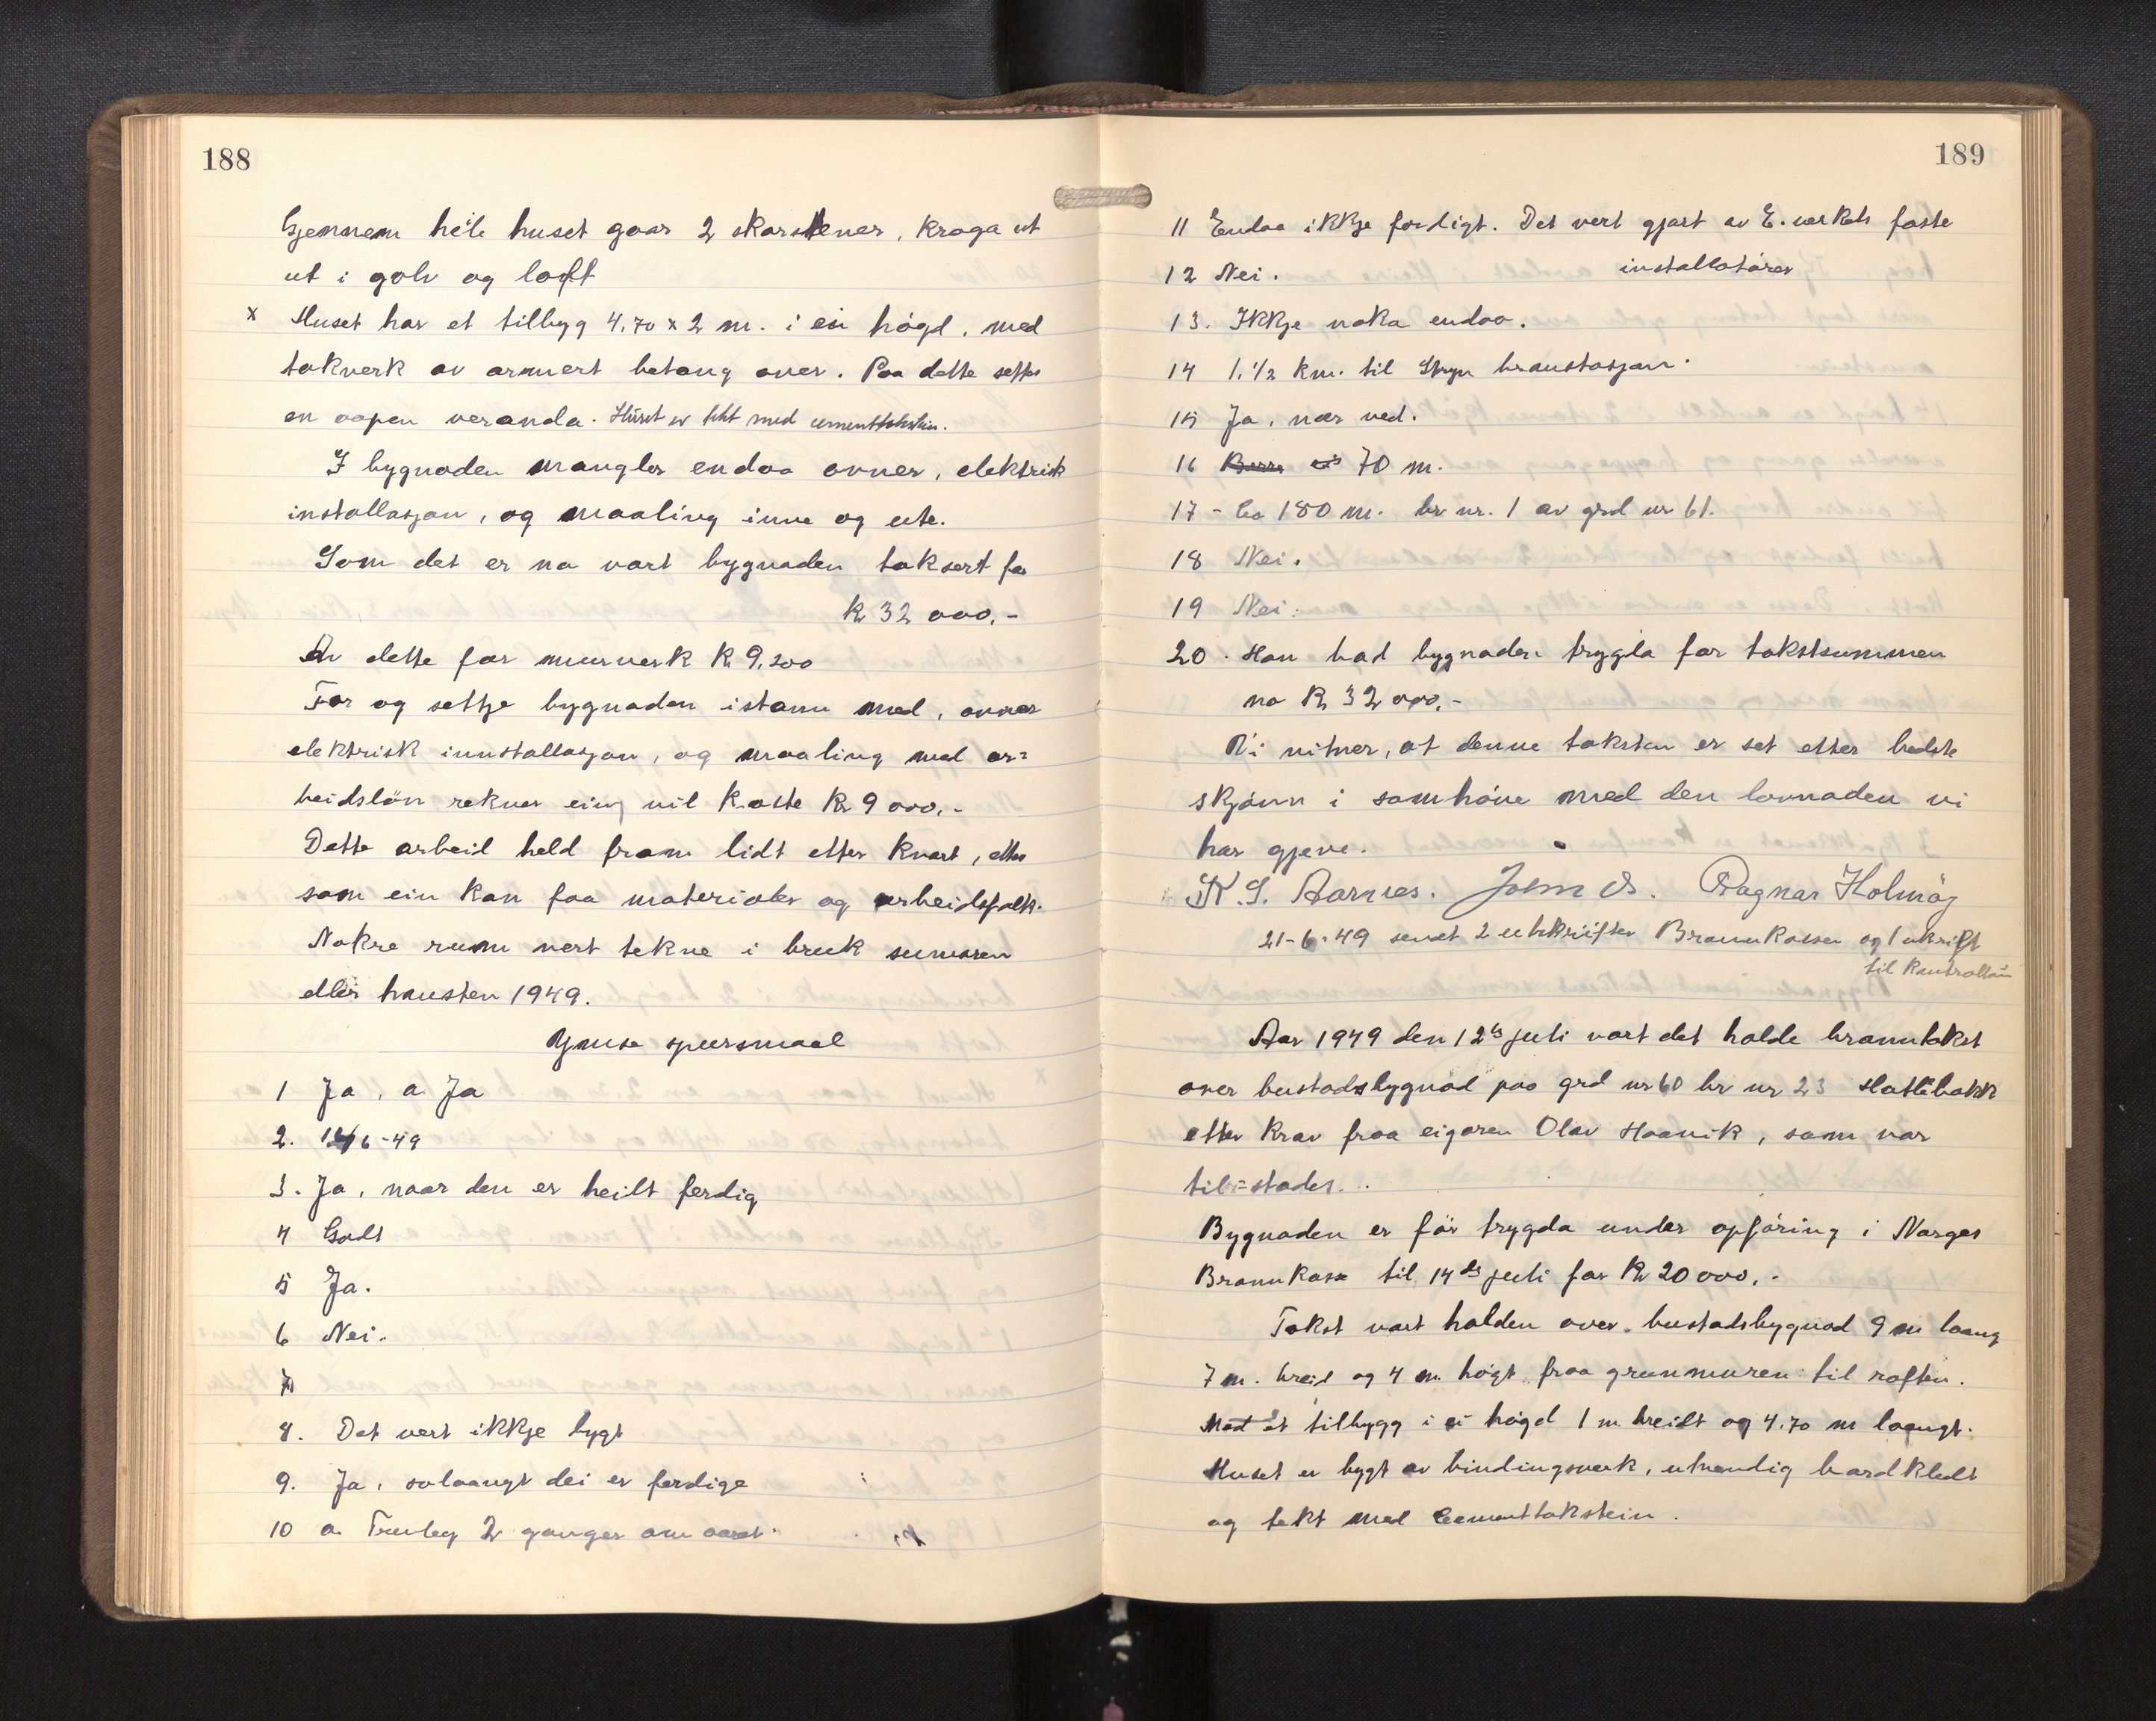 188
Gjennem heile huset gaar 2 skarstener, kraga ut
ut i golv og loft
x Huset har et tilbyg 4.70 x 2 m. i ein høgd, med
takverk av armert betong over. Paa dette settes
en oopen veranda. Huset er tekt med cementtakstein.
I bygnaden mangler endaa ovner, elektrisk
installasjon, og maaling inne og ute.
Som det er no vart bygnaden taksert for
Kr 32 000,-
Av dette for murverk Kr 9,200
For og settje bygnaden istann med, ovner
elektrisk innstallasjon, og maaling med ar=
beidsløn rekner ein vil koste Kr 9 000,-
Dette arbeid held fram lidt etter kvart, etter
som ein kan faa materialer og arbeidsfolk.
Nokre rumm vert tekne i bruk sumaren
eller hausten 1949.
Ymse spursmaal
1 Ja, a Ja
2. 14/6-49
3. Ja, naar den er heilt ferdig
4 Godt
5 Ja.
6 Nei.
7
8. Det vert ikkje bygt
9. Ja, solaangt dei er ferdige
10 a. Truleg 2 ganger om aaret.
189
11 Endaa ikkje ferdigt. Det vert gjort av E.verkets faste
installatører
12 Nei.
13. Ikkje noka endaa.
14 1.1/2 km. til Stryn branstasjon.
15 Ja, nær ved.
16 70 m.
17 - Ca 180 m. br nr. 1 av grd nr 61.
18 Nei.
19 Nei.
20. Han bad bygnaden trygda for takstsummen
no Kr 32 000,-
Vi vitner, at denne taksten er set etter bedste
skjønn i samhøve med den lovnaden vi
har gjeve.
R. S. Aarnes. John Ds. Ragnar Holmøy
21-6-49 sendt 2 utskrifter Brannkassen og 1 utskrift
til Kontrolløren
Aar 1949 den 12ts juli vart det halde branntakst
over bustadsbygnad paa grd nr 60 br nr 23 Hatlebakk
etter krav fraa eigaren Olav Haavik, som var
til=stades.
Bygnaden er før trygda under opføring i Norges
Brannkasse til 14ds juli for Kr 20 000,-
Takst vart halden over bustadsbygnad 9 m laang
7 m. breid og 4 m. høgt fraa grunnmuren til roften.
Med et tilbygg i ei høgd 1 m breidt og 4.70 m laangt.
Huset er bygt av bindingsverk, utvendig bordkledt
og tekt med Cementtakstein.